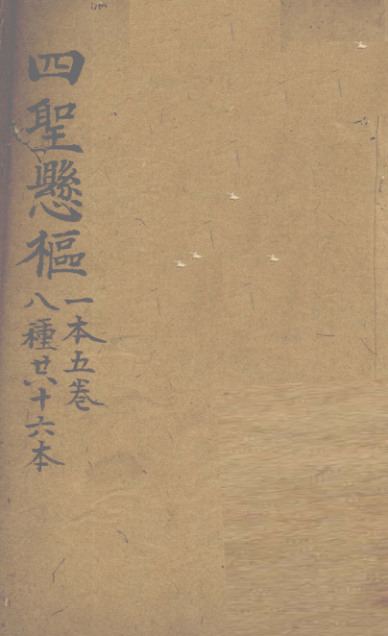 四聖懸樞
一本五卷
八種廿八十六本